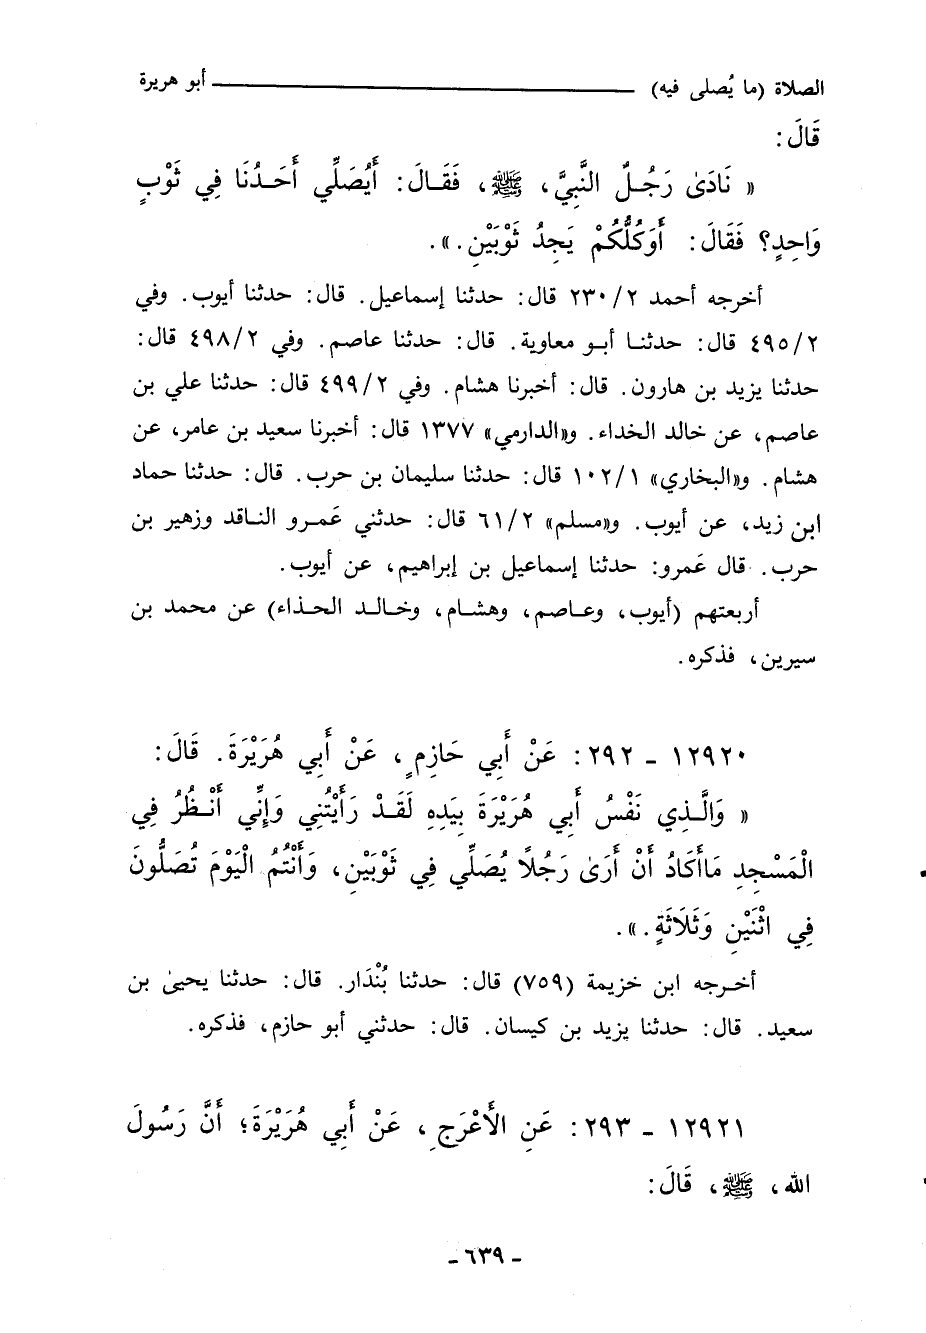 الصلاة (ما يُصلى فيه) ــــــــــــــــ أبو هريرة
قَالَ:
« نَادَىٰ رَجُلٌ النَّبِيَّ، ﷺ، فَقَالَ: أَيُصَلِّي أَحَدُنَا فِي ثَوْبٍ
وَاحِدٍ؟ فَقَالَ: أَوَكُلُّكُمْ يَجِدُ ثَوْبَيْنِ.».
أخرجه أحمد ٢/٢٣٠ قال: حدثنا إسماعيل. قال: حدثنا أيوب. وفي
٢/٤٩٥ قال: حدثنا أبو معاوية. قال: حدثنا عاصم. وفي ٢/٤٩٨ قال:
حدثنا يزيد بن هارون. قال: أخبرنا هشام. وفي ٢/٤٩٩ قال: حدثنا علي بن
عاصم، عن خالد الخداء. و«الدارمي» ١٣٧٧ قال: أخبرنا سعيد بن عامر، عن
هشام. و«البخاري» ١/١٠٢ قال: حدثنا سليمان بن حرب. قال: حدثنا حماد
ابن زيد، عن أيوب. و«مسلم» ٢/٦١ قال: حدثني عَمرو الناقد وزهير بن
حرب. قال عَمرو: حدثنا إسماعيل بن إبراهيم، عن أيوب.
أربعتهم (أيوب، وعاصم، وهشام، وخالد الحذاء) عن محمد بن
سيرين، فذكره.
١٢٩٢٠ - ٢٩٢: عَنْ أَبِي حَازِمٍ، عَنْ أَبِي هُرَيْرَةَ. قَالَ:
« وَالَّذِي نَفْسُ أَبِي هُرَيْرَةَ بِيَدِهِ لَقَدْ رَأَيْتُنِي وَإِنِّي أَنْظُرُ فِي
الْمَسْجِدِ مَاأَكَادُ أَنْ أَرَىٰ رَجُلًا يُصَلِّي فِي ثَوْبَيْنِ، وَأَنْتُمُ الْيَوْمَ تُصَلُّونَ
فِي اثْنَيْنِ وَثَلَاثَةٍ.».
أخرجه ابن خزيمة (٧٥٩) قال: حدثنا بُنْدَار. قال: حدثنا يحيىٰ بن
سعيد. قال: حدثنا يزيد بن كيسان. قال: حدثني أبو حازم، فذكره.
١٢٩٢١ - ٢٩٣: عَنِ الأَعْرَجِ، عَنْ أَبِي هُرَيْرَةَ؛ أَنَّ رَسُولَ
الله، ﷺ، قَالَ:
- ٦٣٩ -